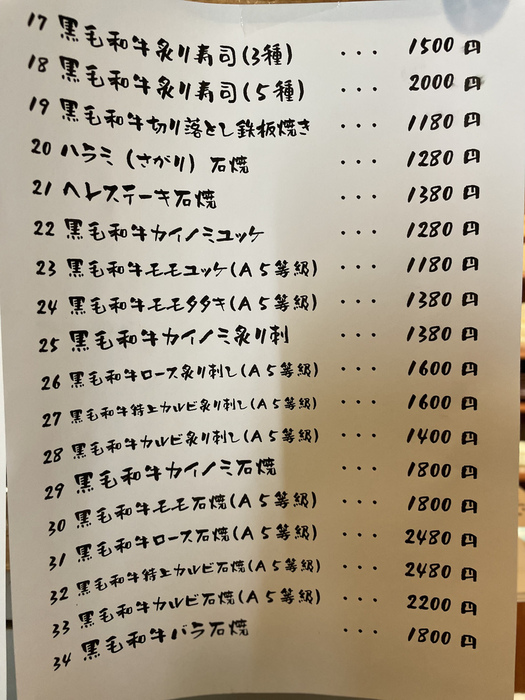 17 黒毛和牛炙り寿司(3種) ... 1500円
18 黒毛和牛炙り寿司(5種) ... 2000円
19 黒毛和牛切り落とし鉄板焼き ... 1180円
20 ハラミ(さがり)石焼 ... 1280円
21 ヘレステーキ石焼 ... 1380円
22 黒毛和牛カイノミユッケ ... 1280円
23 黒毛和牛モモユッケ(A5等級) ... 1180円
24 黒毛和牛モモタタキ(A5等級) ... 1380円
25 黒毛和牛カイノミ炙り刺 ... 1380円
26 黒毛和牛ロース炙り刺し(A5等級) ... 1600円
27 黒毛和牛特上カルビ炙り刺し(A5等級) ... 1600円
28 黒毛和牛カルビ炙り刺し(A5等級) ... 1400円
29 黒毛和牛カイノミ石焼 ... 1800円
30 黒毛和牛モモ石焼(A5等級) ... 1800円
31 黒毛和牛ロース石焼(A5等級) ... 2480円
32 黒毛和牛特上カルビ石焼(A5等級) ... 2480円
33 黒毛和牛カルビ石焼(A5等級) ... 2200円
34 黒毛和牛バラ石焼 ... 1800円